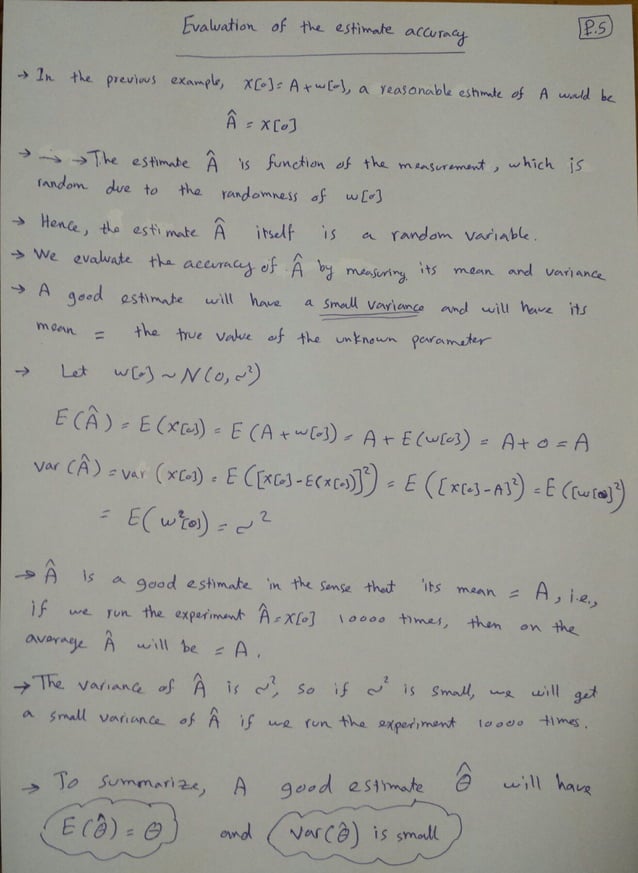 Evaluation of the estimate accuracy
P.5
→ In the previous example, x[0] = A + w[0], a reasonable estimate of A would be
Â = x[0]
→ → →The estimate Â is function of the measurement, which is
random due to the randomness of w[0]
→ Hence, the estimate Â itself is a random variable.
→ We evaluate the accuracy of Â by measuring its mean and variance
→ A good estimate will have a small variance and will have its
mean = the true value of the unknown parameter
→ Let w[0] ~ N(0, σ²)
E(Â) = E(x[0]) = E(A + w[0]) = A + E(w[0]) = A + 0 = A
var(Â) = var(x[0]) = E([x[0] - E(x[0])]²) = E([x[0] - A]²) = E([w[0]]²)
= E(w²[0]) = σ²
→ Â is a good estimate in the sense that its mean = A, i.e.,
if we run the experiment Â = x[0] 10000 times, then on the
average Â will be = A.
→ The variance of Â is σ², so if σ² is small, we will get
a small variance of Â if we run the experiment 10000 times.
→ To summarize, A good estimate θ̂ will have
E(θ̂) = θ and var(θ̂) is small